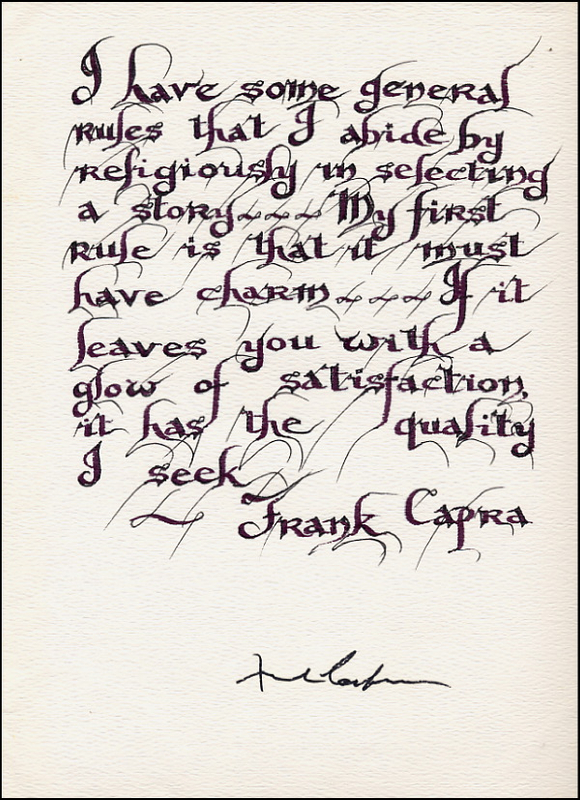 I have some general
rules that I abide by
religiously in selecting
a story~~~My first
rule is that it must
have charm~~~If it
leaves you with a
glow of satisfaction,
it has the quality
I seek
~ Frank Capra
Frank Capra